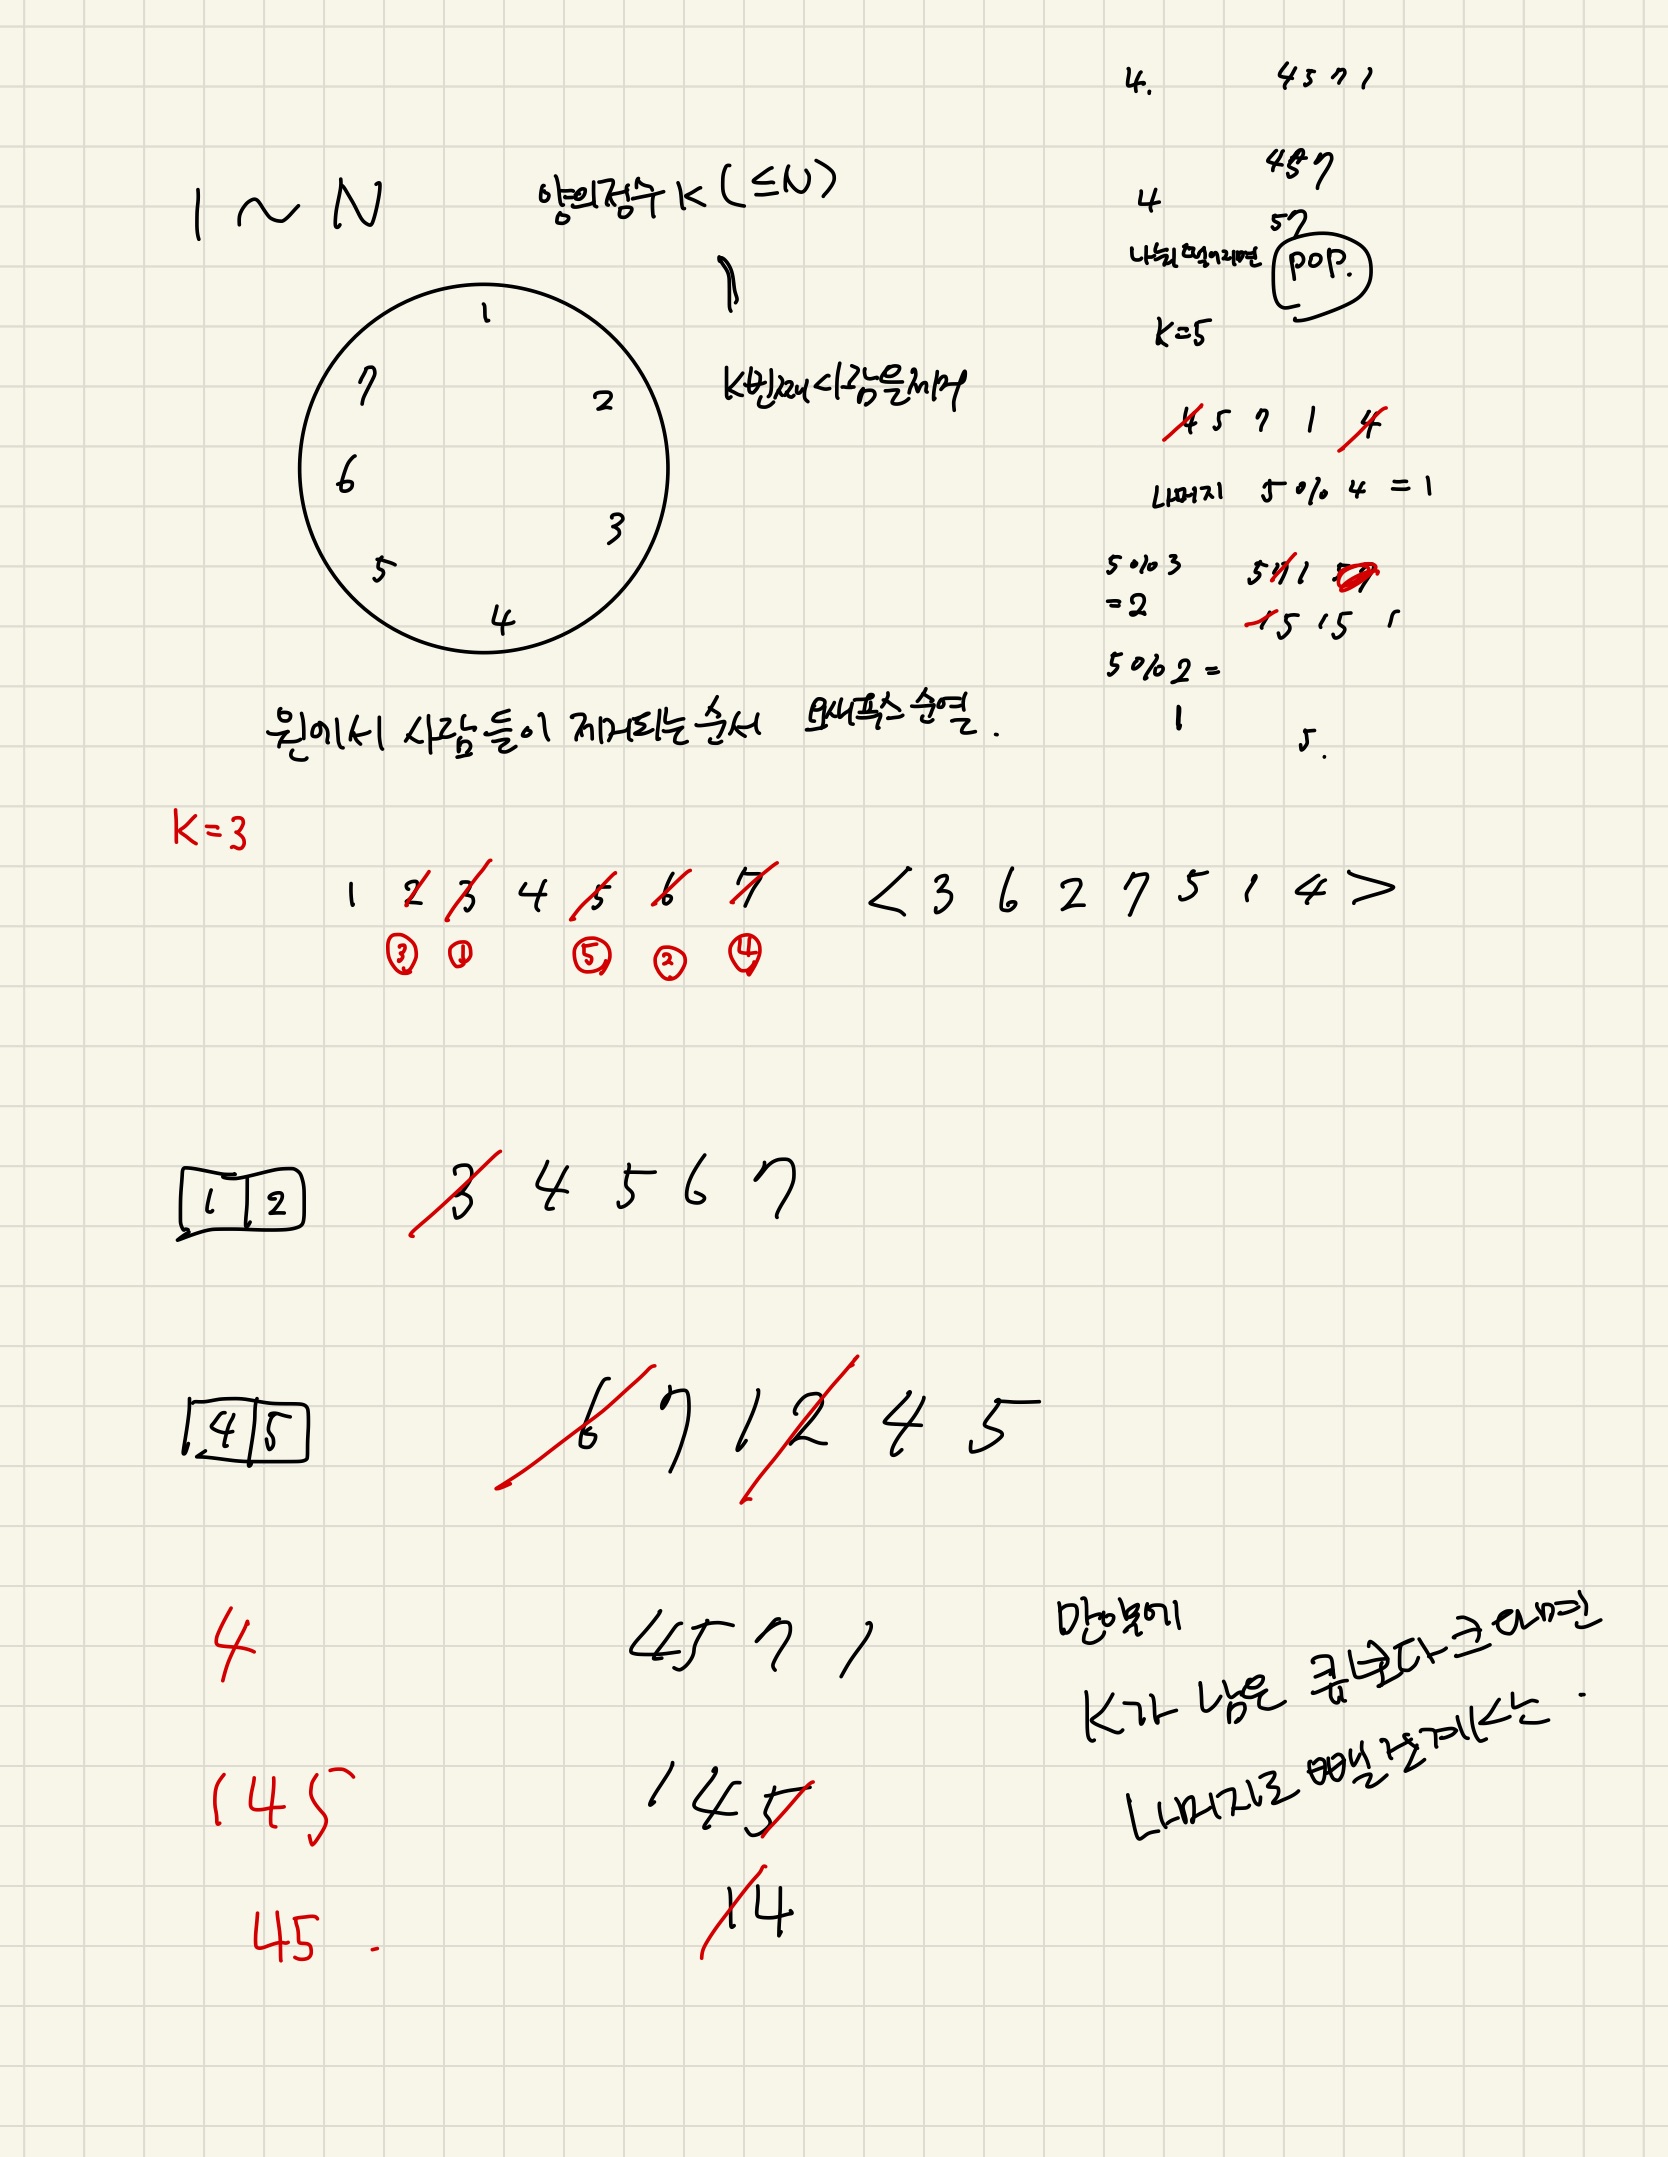 1 ~ N
양의정수 K (≤N)
1
2
3
4
5
6
7
K번째 사람을 제거
원에서 사람들이 제거되는 순서 요세푸스 순열.
4. 4 5 7 1
4 5 7
4
5 7
나눠떨어지면 pop.
K=5
4 5 7 1 4
나머지 5 % 4 = 1
5 % 3 5 7 1
= 2
1 5 1 5 1
5 % 2 =
1
5.
K=3
1 2 3 4 5 6 7 < 3 6 2 7 5 1 4 >
③ ① ⑤ ② ④
1 2 3 4 5 6 7
4 5 6 7 1 2 4 5
4 4 5 7 1
1 4 5 1 4 5
4 5 . 1 4
만약에
K가 남은 큐보다 크다면
나머지로 빼줄계산.